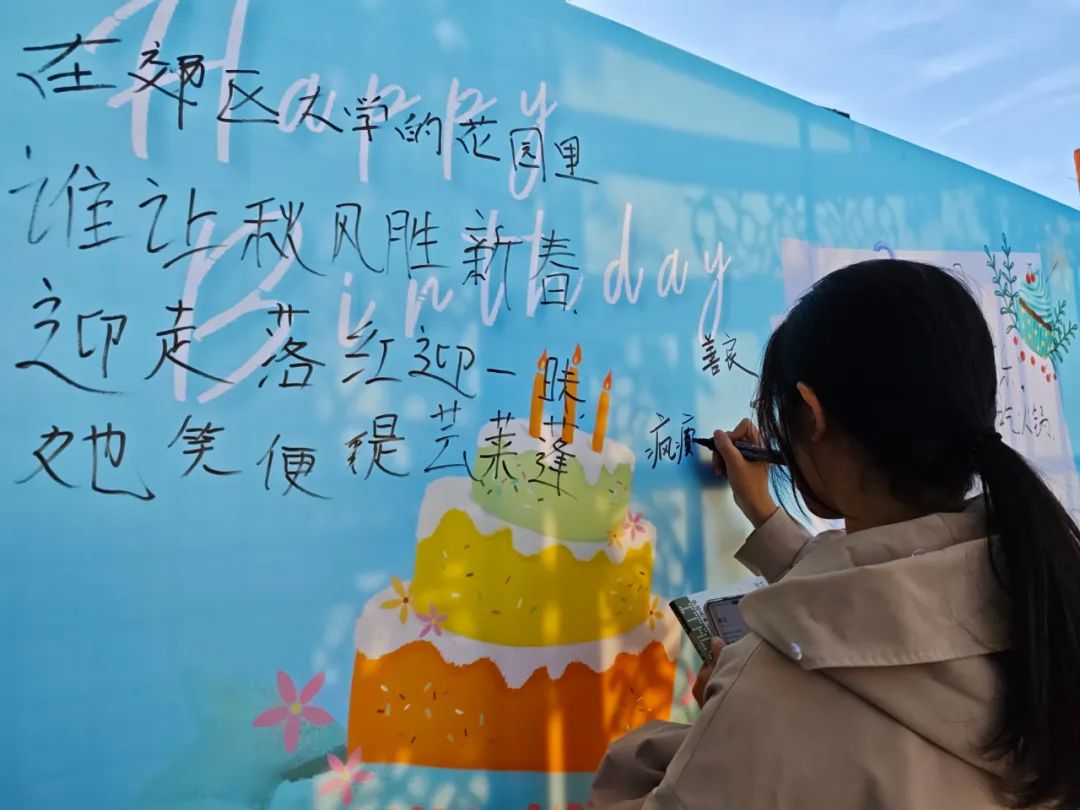 Happy
Birthday
在郊区大学的花园里
谁让秋风胜新春
迎走落红迎一昧
她笑便缇芸莱蓬
善
疯
火锅